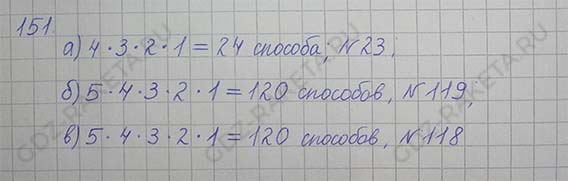 151.
а) 4·3·2·1 = 24 способа; №23;
б) 5·4·3·2·1 = 120 способов, №119;
в) 5·4·3·2·1 = 120 способов, №118
GDZ-RAKETA.RU